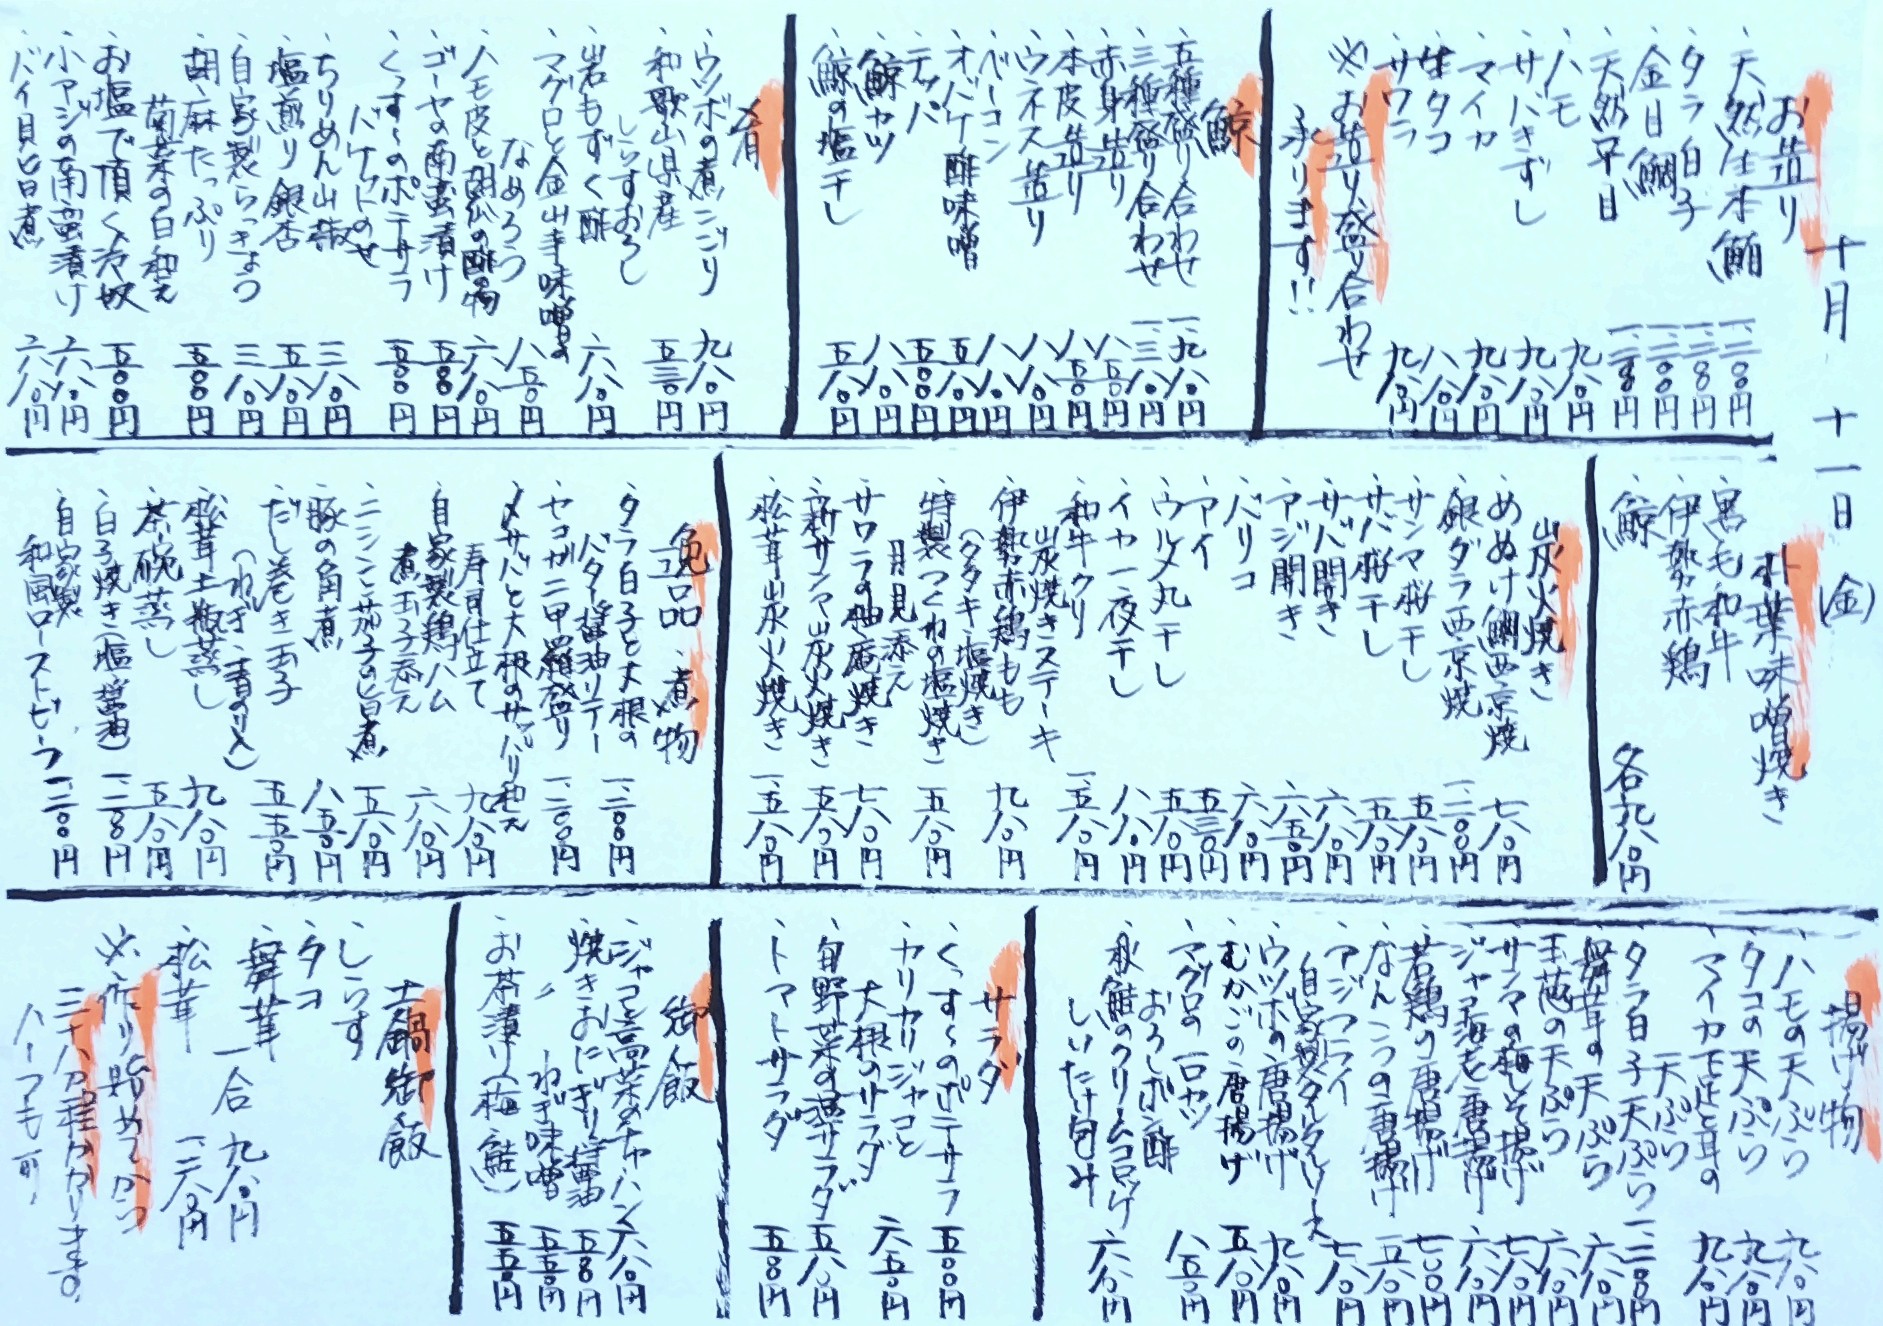 十月 十一日(金)
お造り
、天然生本鮪 一、二〇〇円
、タラ白子
、金目鯛
、天然平目
、ハモ 九八〇円
、サバきずし 九八〇円
、マイカ 九八〇円
、生タコ 八八〇円
、サワラ 九八〇円
※お造り盛り合わせ
承ります!!
鯨
、五種盛り合わせ 一、九八〇円
、三種盛り合わせ 一、三八〇円
、赤身造り 八五〇円
、本皮造り 八五〇円
、ウネス造り 八八〇円
、ベーコン 八八〇円
、オバケ酢味噌 五八〇円
、テッパ 五〇〇円
、鯨カツ 八八〇円
、鯨の塩干し 五八〇円
肴
、ウツボの煮こごり 九八〇円
、和歌山県産
しらすおろし 五三〇円
、岩もずく酢 六八〇円
、マグロと金山寺味噌の
なめろう 八五〇円
、ハモ皮と胡瓜の酢の物 六八〇円
、ゴーヤの南蛮漬け 五〇〇円
、くっすーのポテサラ
バケットのせ 五〇〇円
、ちりめん山椒 三八〇円
、塩煎り銀杏 五八〇円
、自家製らっきょう 三八〇円
、胡麻たっぷり
菊菜の白和え 五〇〇円
、お塩で頂く冷奴 五〇〇円
、小アジの南蛮漬け 六八〇円
、バイ貝旨煮 六八〇円
朴葉味噌焼き
、黒毛和牛
、伊勢赤鶏
、鯨 各九八〇円
炭火焼き
、めぬけ鯛西京焼 七八〇円
、銀ダラ西京焼 一、二〇〇円
、サンマ桜干し 五八〇円
、サバ桜干し 五八〇円
、サバ開き 六八〇円
、アジ開き 六五〇円
、バリコ 六八〇円
、アイ 五三〇円
、ウルメ丸干し 五八〇円
、イカ一夜干し 八八〇円
、和牛クリ
炭焼きステーキ 一、五八〇円
、伊勢赤鶏もも
(タタキ・塩焼き) 九八〇円
、特製つくねの塩焼き
月見添え 五八〇円
、サワラの柚庵焼き 七八〇円
、新サンマ炭火焼き 五八〇円
、松茸炭火焼き 一、五八〇円
逸品 煮物
、タラ白子と大根の
バター醤油ソテー 一、二〇〇円
、セコガニ甲羅盛り 一、二〇〇円
、〆サバと大根のサッパリ和え
寿司仕立て 九八〇円
、自家製鶏ハム
煮玉子添え 六八〇円
、ニシンと茄子の旨煮 五八〇円
、豚の角煮 八五〇円
、だし巻き玉子
(ねぎ・青のり入) 五五〇円
、松茸土瓶蒸し 九八〇円
、茶碗蒸し 五八〇円
、白子焼き(塩・醤油)
、自家製
和風ローストビーフ 一、二〇〇円
揚げ物
、ハモの天ぷら 九八〇円
、タコの天ぷら 九八〇円
、マイカ下足と耳の
天ぷら 九八〇円
、タラ白子天ぷら 一、二〇〇円
、舞茸の天ぷら 六八〇円
、玉葱の天ぷら 六八〇円
、サンマの梅しそ揚げ 七八〇円
、ジャコ海老唐揚げ 六八〇円
、若鶏の唐揚げ 七〇〇円
、なんこつの唐揚げ 五八〇円
、アジフライ
自家製タルタルソース 七八〇円
、ウツボの唐揚げ 九八〇円
、むかごの唐揚げ 五八〇円
、マグロの一口カツ
おろしポン酢 八五〇円
、秋鮭のクリームコロッケ
しいたけ包み 六八〇円
サラダ
、くっすーのポテサラ 五〇〇円
、カリカリジャコと
大根のサラダ 六五〇円
、旬野菜の温サラダ 五八〇円
、トマトサラダ 五五〇円
御飯
、ジャコと高菜のチャーハン 六八〇円
、焼きおにぎり醤油 五五〇円
、〃 ねぎ味噌 五五〇円
、お茶漬け(梅・鮭) 五五〇円
土鍋御飯
、しらす
、タコ
、舞茸 一合 九八〇円
、松茸
※作り始めてから
三十八分程かかります。
ハーフも可。